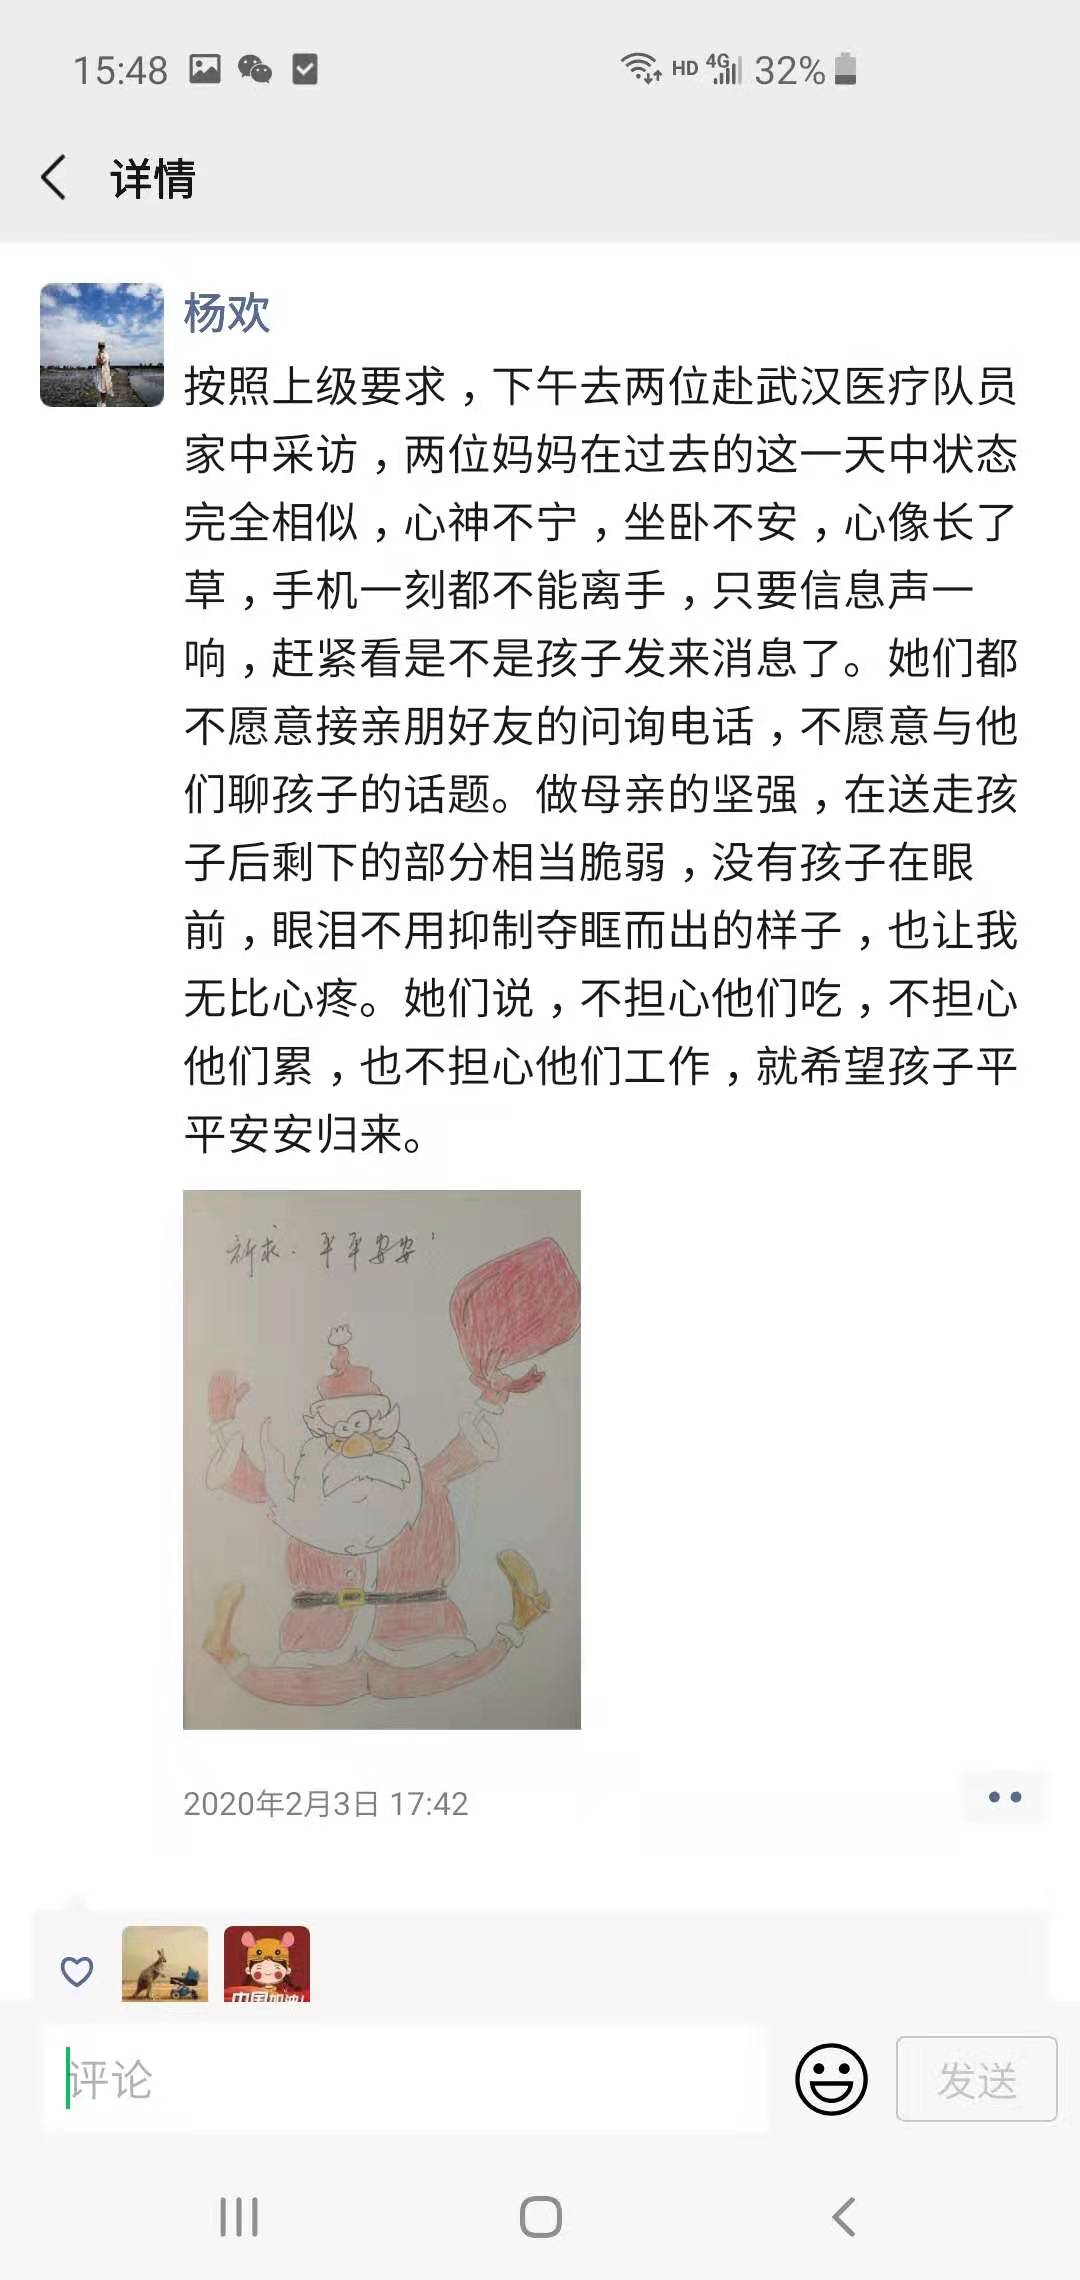 15:48
HD 4G 32%
详情
杨欢
按照上级要求，下午去两位赴武汉医疗队员
家中采访，两位妈妈在过去的这一天中状态
完全相似，心神不宁，坐卧不安，心像长了
草，手机一刻都不能离手，只要信息声一
响，赶紧看是不是孩子发来消息了。她们都
不愿意接亲朋好友的问询电话，不愿意与他
们聊孩子的话题。做母亲的坚强，在送走孩
子后剩下的部分相当脆弱，没有孩子在眼
前，眼泪不用抑制夺眶而出的样子，也让我
无比心疼。她们说，不担心他们吃，不担心
他们累，也不担心他们工作，就希望孩子平
平安安归来。
祈求：平平安安！
2020年2月3日 17:42
中国加油!
评论
发送